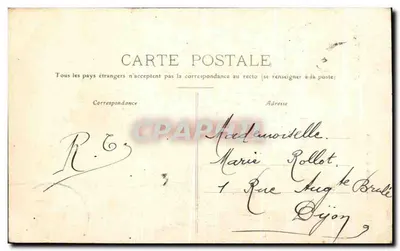 CARTE POSTALE
Tous les pays étrangers n'acceptent pas la correspondance au recto (se renseigner à la poste)
Correspondance
Adresse
R. T.
Mademoiselle
Marie Rollot
1 Rue Aug te Brulé
Dijon
CPARAMA